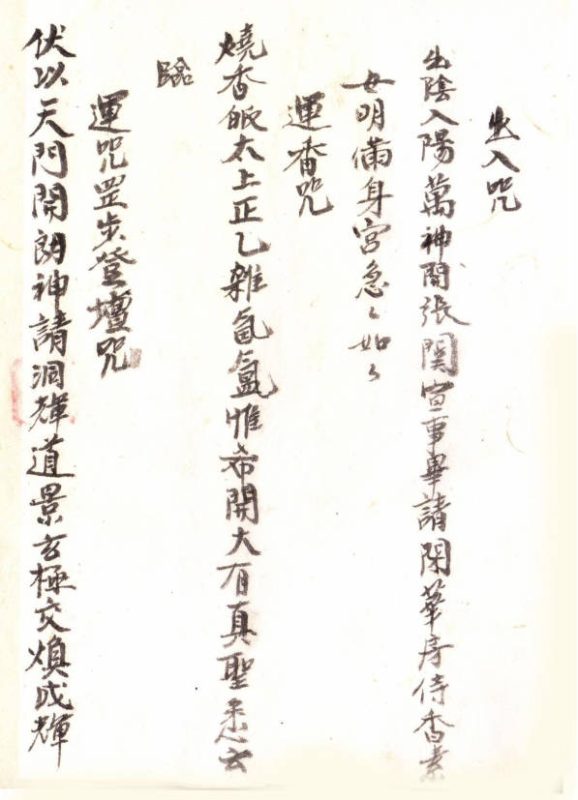 出入咒
出陰入陽萬神開張関宣事畢請閑華房侍香素
女明備身宮急〻如〻
運香咒
燒香皈太上正乙雜氤氳惟希開大有真聖悉云
臨
運咒罡步登壇咒
伏以天門開朗神請洞輝道景玄極交煥成輝